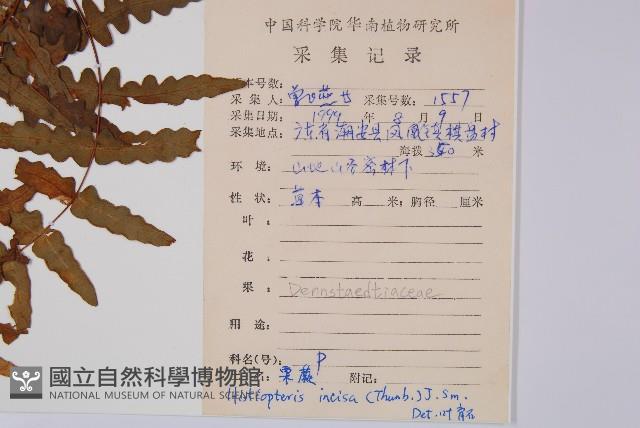 中国科学院华南植物研究所
采集记录
标本号数:
采集人: 采集号数: 1557
采集日期: 1999 年 8 月 9 日
采集地点: 广东省潮安县凤凰镇
海拔 350 米
环境: 山地山谷密林下
性状: 草本 高 米; 胸径 厘米
叶:
花:
果: Dennstaedtiaceae
用途:
科名(号): P
名: 栗蕨 附记:
Histiopteris incisa (Thunb.) J. Sm.
Det.
國立自然科學博物館
NATIONAL MUSEUM OF NATURAL SCIENCE